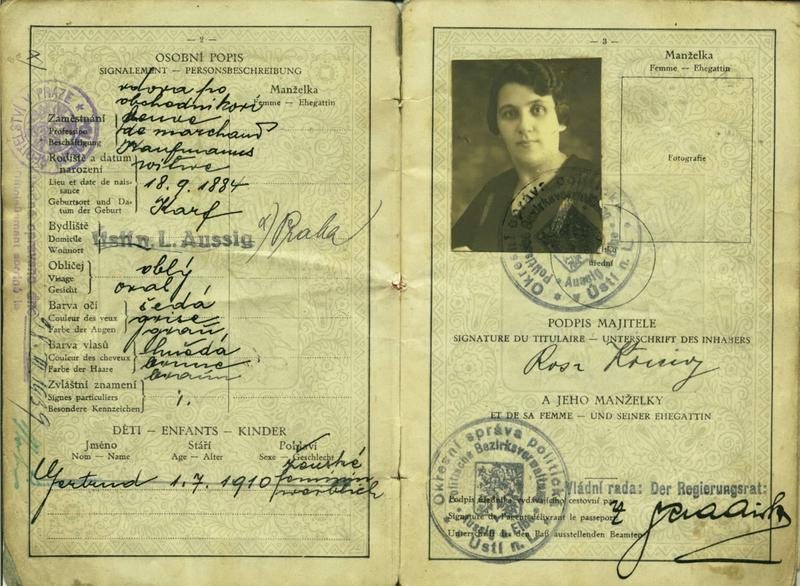 — 2 —
OSOBNÍ POPIS
SIGNALEMENT — PERSONSBESCHREIBUNG
Manželka
Femme — Ehegattin
vdova po
obchodníkovi
Zaměstnání
Profession
Beschäftigung
veuve
de marchand
Kaufmanns
witwe
Rodiště a datum
narození
Lieu et date de nais-
sance
Geburtsort und Da-
tum der Geburt
18. 9. 1884
Karf
Bydliště
Domicile
Wohnort
Ústí n. L. Aussig
x) Praha
Obličej
Visage
Gesicht
oblý
oval
Barva očí
Couleur des yeux
Farbe der Augen
šedá
grise
grau
Barva vlasů
Couleur des cheveux
Farbe der Haare
hnědá
brune
braun
Zvláštní znamení
Signes particuliers
Besondere Kennzeichen
DĚTI — ENFANTS — KINDER
Jméno Stáří Pohlaví
Nom — Name Age — Alter Sexe — Geschlecht
Gertrud 1. 7. 1910 ženské
féminin
weiblich
— 3 —
Manželka
Femme — Ehegattin
Fotografie
Okresní správa politická
Politische Bezirksverwaltung
Aussig
Ústí n. L.
úřední
PODPIS MAJITELE
SIGNATURE DU TITULAIRE — UNTERSCHRIFT DES INHABERS
Rosa
A JEHO MANŽELKY
ET DE SA FEMME — UND SEINER EHEGATTIN
Okresní správa politická
Politische Bezirksverwaltung
Aussig a. Elbe
Ústí n. L.
Vládní rada: Der Regierungsrat:
Podpis úředníka vydávajícího cestovní pas
Signature de l'agent délivrant le passeport
Unterschrift des den Paß ausstellenden Beamten